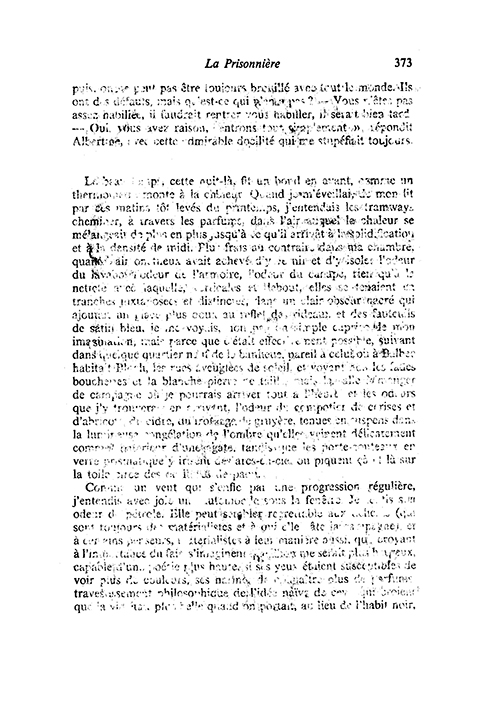 La Prisonnière 373
pas être toujours brouillé avec tout le monde. Ils
ont des défauts, mais qu'est-ce qui — Vous n'êtes pas
assez habillée, il faudrait rentrer vous habiller, il serait bien tard
— Oui, vous avez raison, rentrons tout simplement », répondit
Albertine, avec cette admirable docilité qui me stupéfiait toujours.
Le temps, cette nuit-là, fit un bond en avant, comme un
monte à la chaleur. Quand je m'éveillai, de mon lit
par ces matins tôt levés du printemps, j'entendais les tramways
cheminer, à travers les parfums, dans l'air auquel la chaleur se
mélangeait de plus en plus jusqu'à ce qu'il arrivât à la solidification
et à la densité de midi. Plus frais au contraire dans ma chambre,
quand l'air onctueux avait achevé d'y et d'y isoler l'odeur
du lavabo, l'odeur de l'armoire, l'odeur du canapé, rien qu'à la
netteté avec laquelle, verticales et debout, elles se tenaient en
tranches juxtaposées et distinctes, dans un clair-obscur nacré qui
ajoutait un plus doux au reflet des rideaux et des fauteuils
de satin bleu, je me voyais, non par simple caprice de mon
imagination, mais parce que c'était effectivement possible, suivant
dans quelque quartier neuf de la banlieue, pareil à celui où à Balbec
habitait Bloch, les rues aveuglées de soleil, et voyant les fades
boucheries et la blanche pierre de taille, mais la salle à manger
de campagne où je pourrais arriver tout à l'heure, et les odeurs
que j'y trouverais en arrivant, l'odeur du compotier de cerises et
d'abricots, du cidre, du fromage de gruyère, tenues en suspens dans
la lumineuse congélation de l'ombre qu'elles veinent délicatement
comme l'intérieur d'une agate, tandis que les porte-couteaux en
verre prismatique y irisent des arcs-en-ciel, ou piquent çà et là sur
la toile cirée des de paon.
Comme un vent qui s'enfle par une progression régulière,
j'entendis avec joie un automobile sous la fenêtre. Je sentis son
odeur de pétrole. Elle peut sembler regrettable aux (qui
sont toujours des matérialistes et à qui elle gâte la campagne) et
à certains penseurs, matérialistes à leur manière aussi, qui, croyant
à l'importance du fait, s'imaginent que l'homme serait plus heureux,
capable d'une poésie plus haute, si ses yeux étaient susceptibles de
voir plus de couleurs, ses narines de connaître plus de parfums,
travestissement philosophique de l'idée naïve de ceux qui croient
que la vie était plus belle quand on portait, au lieu de l'habit noir,